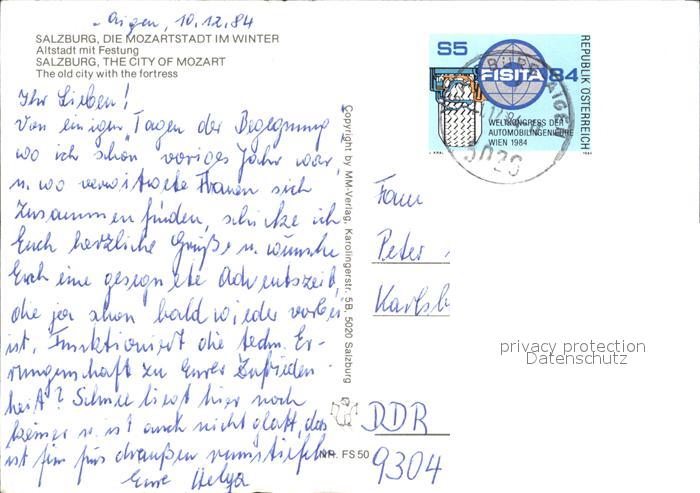 Aigen, 10.12.84
SALZBURG, DIE MOZARTSTADT IM WINTER
Altstadt mit Festung
SALZBURG, THE CITY OF MOZART
The old city with the fortress
Ihr Lieben!
Von einigen Tagen der Begegnung
wo ich schon voriges Jahr war
u. wo verwitwete Frauen sich
zusammenfinden, schicke ich
Euch herzliche Grüße u. wünsche
Euch eine gesegnete Adventszeit,
die ja schon bald wieder vorbei
ist. Funktioniert die techn. Er-
rungenschaft zu Eurer Zufrieden-
heit? Schnee liegt hier noch
keiner u. ist auch nicht glatt, das
ist fein fürs draußen rumstiefeln.
Eure Helga
Copyright by MM-Verlag, Karolingerstr. 5B, 5020 Salzburg
NR. FS 50
S5
FISITA 84
WELTKONGRESS DER
AUTOMOBILINGENIEURE
WIEN 1984
REPUBLIK ÖSTERREICH
1984
5020
Fam
Peter
Karlsb
privacy protection
Datenschutz
DDR
9304